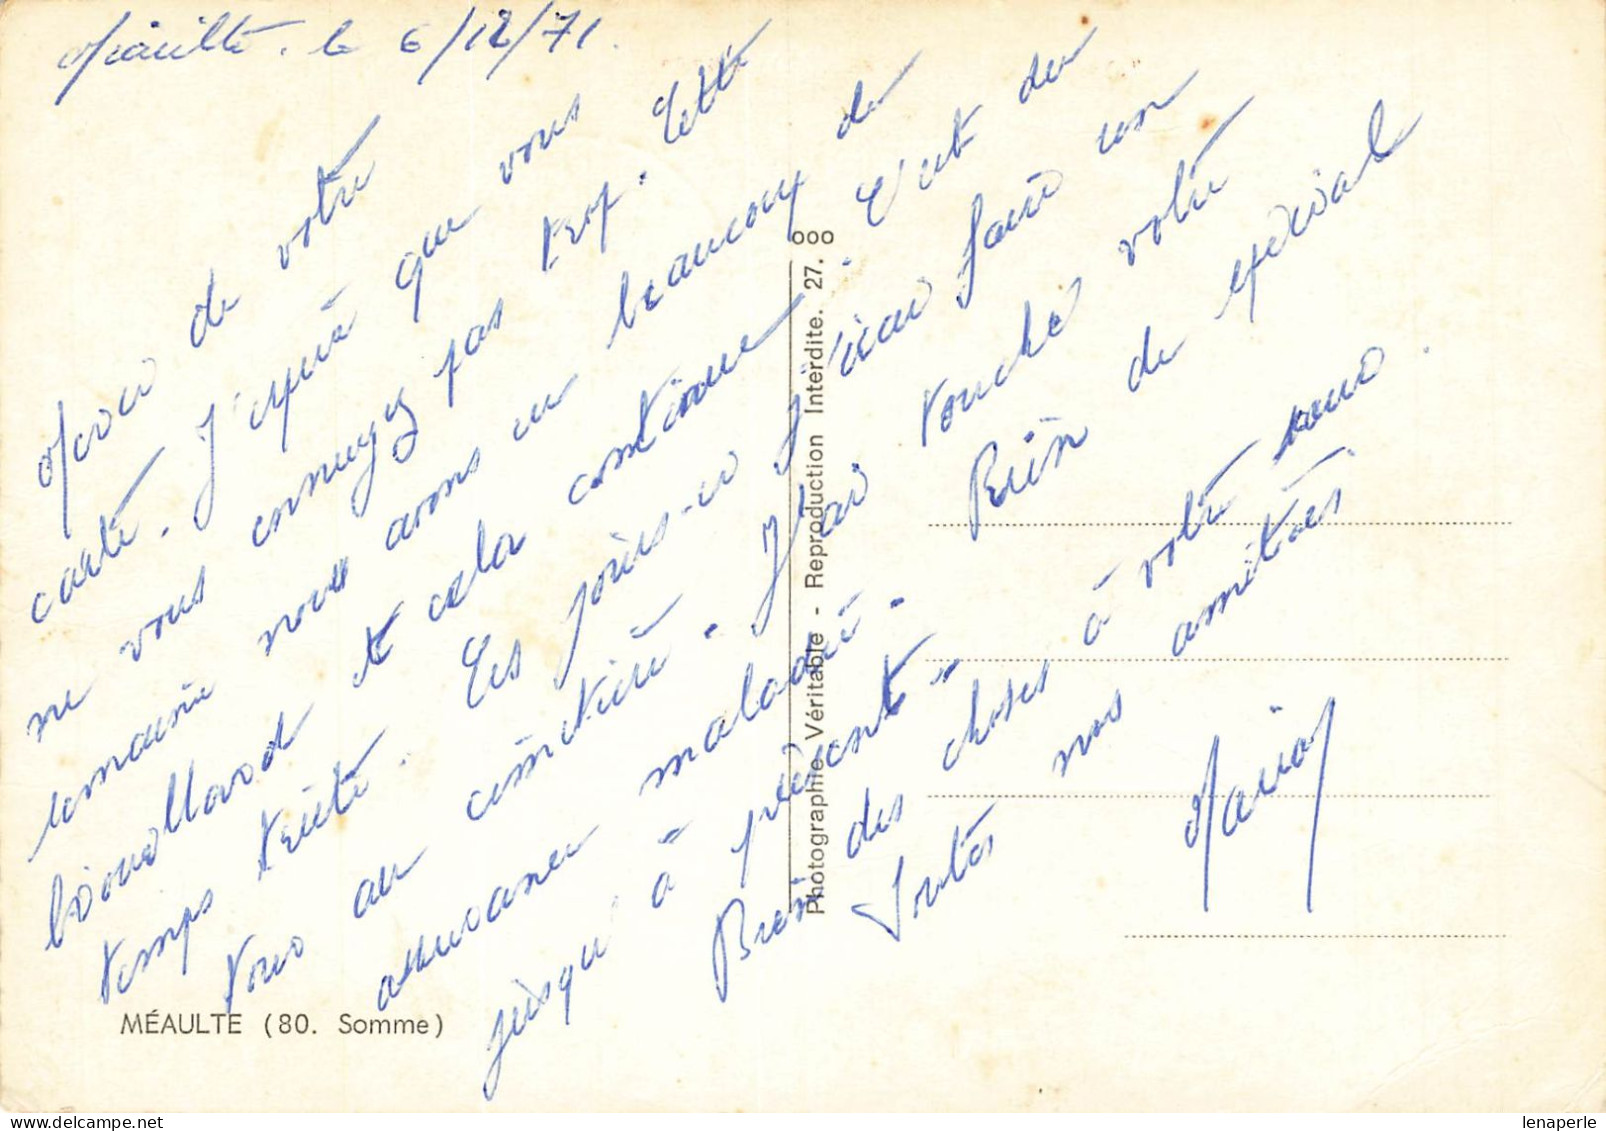 Méaulte. le 6/12/71.
Merci de votre
carte. J'espère que vous
ne vous ennuyez pas trop. Cette
semaine nous avons eu beaucoup de
brouillard et cela continue. C'est du
temps triste. Ces jours-ci j'irai faire un
tour au cimetière. J'ai touché votre
assurance maladie. Rien de spécial
jusqu'à présent.
Bien des choses à votre
Toutes nos amitiés
MÉAULTE (80. Somme)
Photographie Véritable - Reproduction Interdite. 27. 000
lenaperle